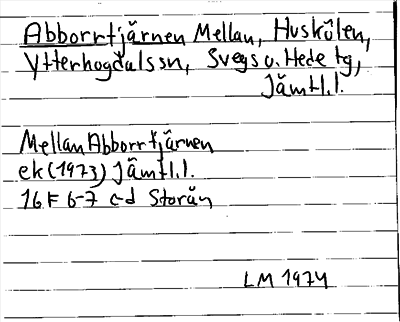 Abborrtjärnen Mellan, Huskölen,
Ytterhogdalssn, Svegs o. Hede tg,
Jämtl.l.
MellanAbborrtjärnen
ek (1973) Jämtl.l.
16 F 6-7 c-d Storån
LM 1974